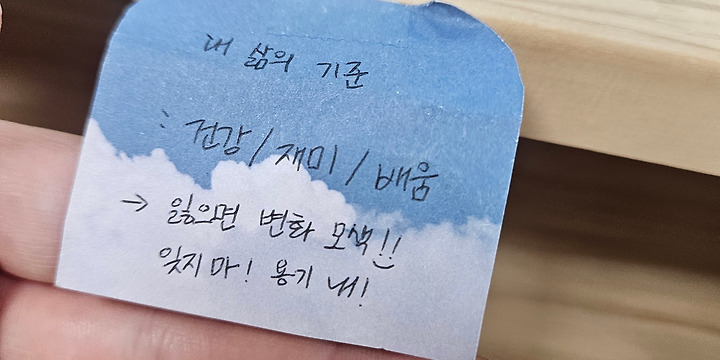 내 삶의 기준
: 건강 / 재미 / 배움
→ 잃으면 변화 모색!!
잊지 마! 용기 내!